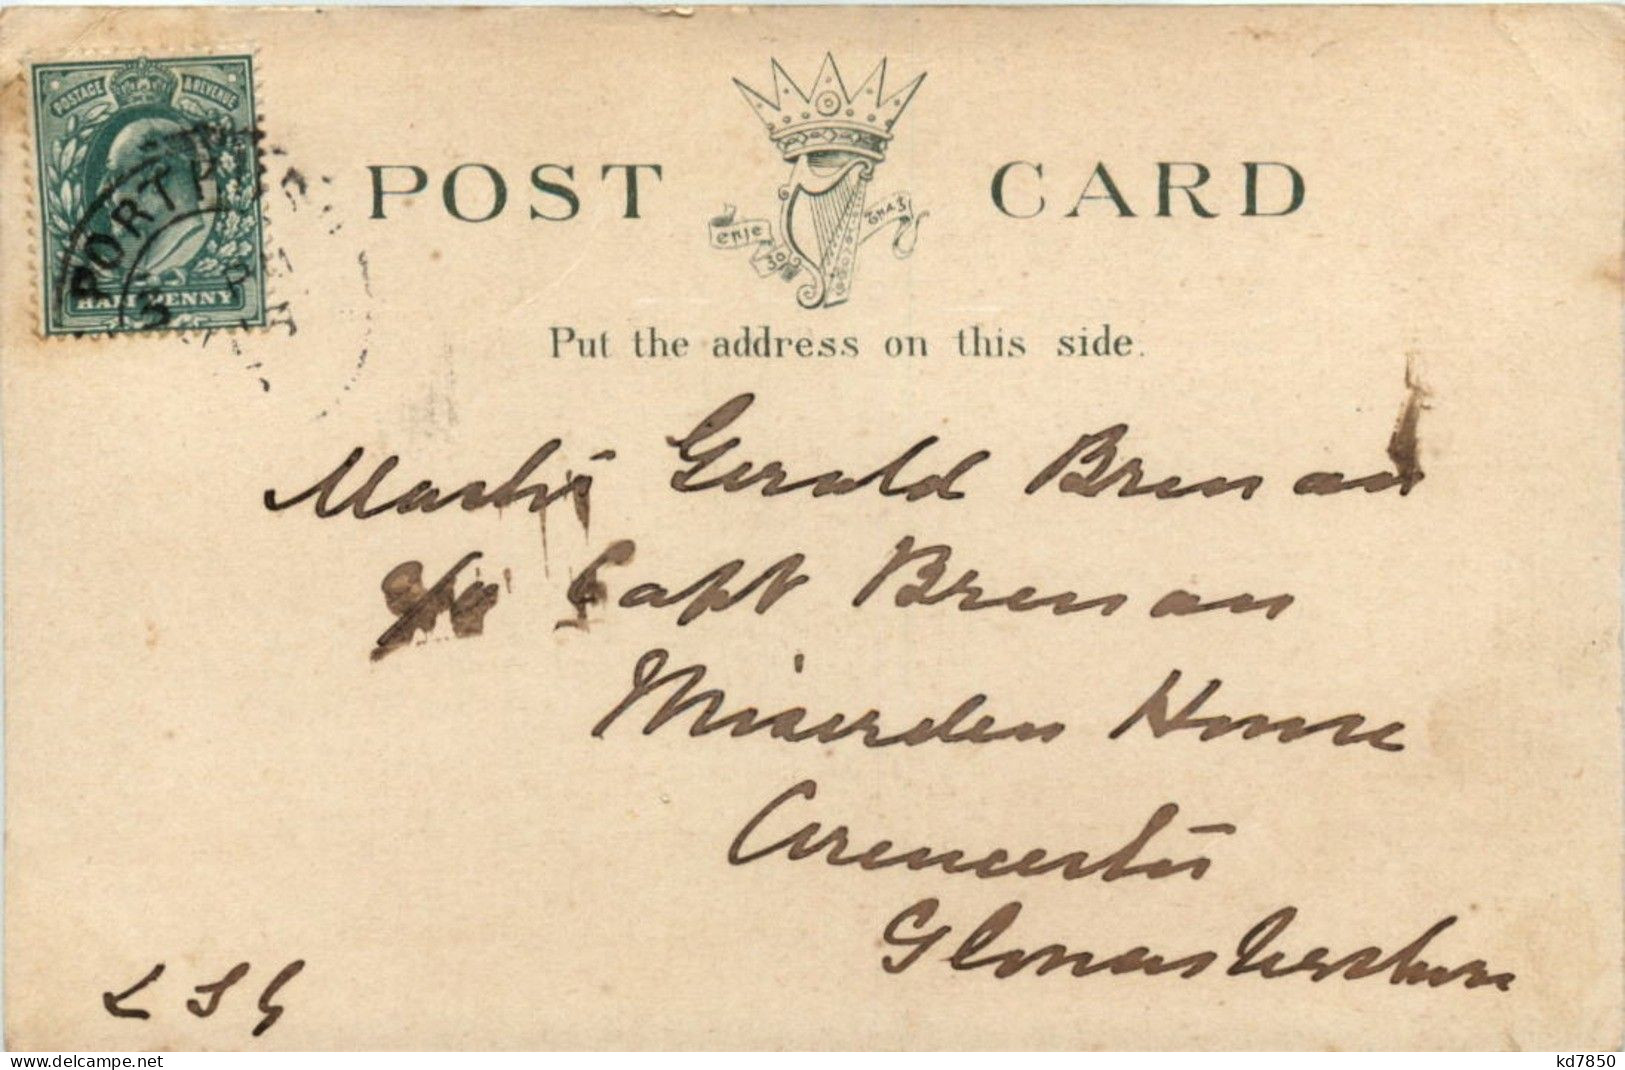 POSTAGE & REVENUE
PORTH
HALF PENNY
POST CARD
Put the address on this side.
Master Gerald Brenan
c/o Capt Brenan
Miserden House
Cirencester
Gloucestershire
L S G
www.delcampe.net
kd7850